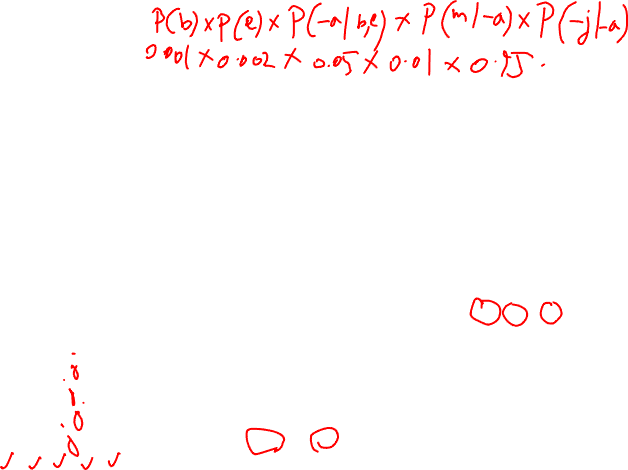 P(b) × P(e) × P(-a|b,e) × P(m|-a) × P(-j|-a)
0.001 × 0.002 × 0.05 × 0.01 × 0.95.